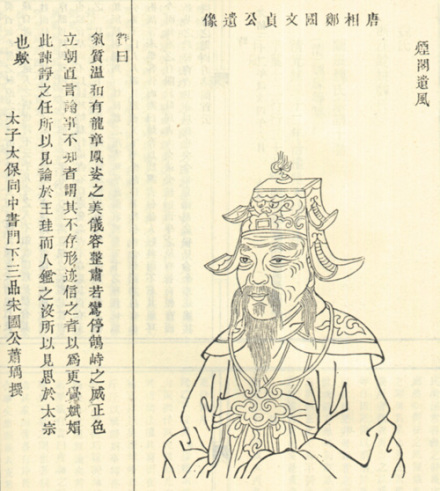 煙閣遺風
唐相鄭國文貞公遺像
曰
氣質溫和有龍章鳳姿之美儀容整肅若鸞停鵠峙之威正色
立朝直言論事不知者謂其不存形迹信之者以爲更覺娬媚
此諫諍之任所以見論於王珪而人鑑之沒所以見思於太宗
也歟
太子太保同中書門下三品宋國公蕭瑀撰